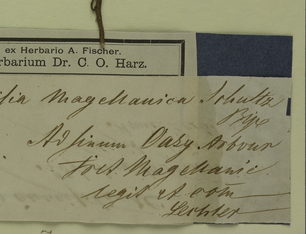 ex Herbario A. Fischer.
rbarium Dr. C. O. Harz.
Magellanica Schultz
Bip
Ad sinum Oazy Arbour
Fret Magellanic.
legit et com
Lechler